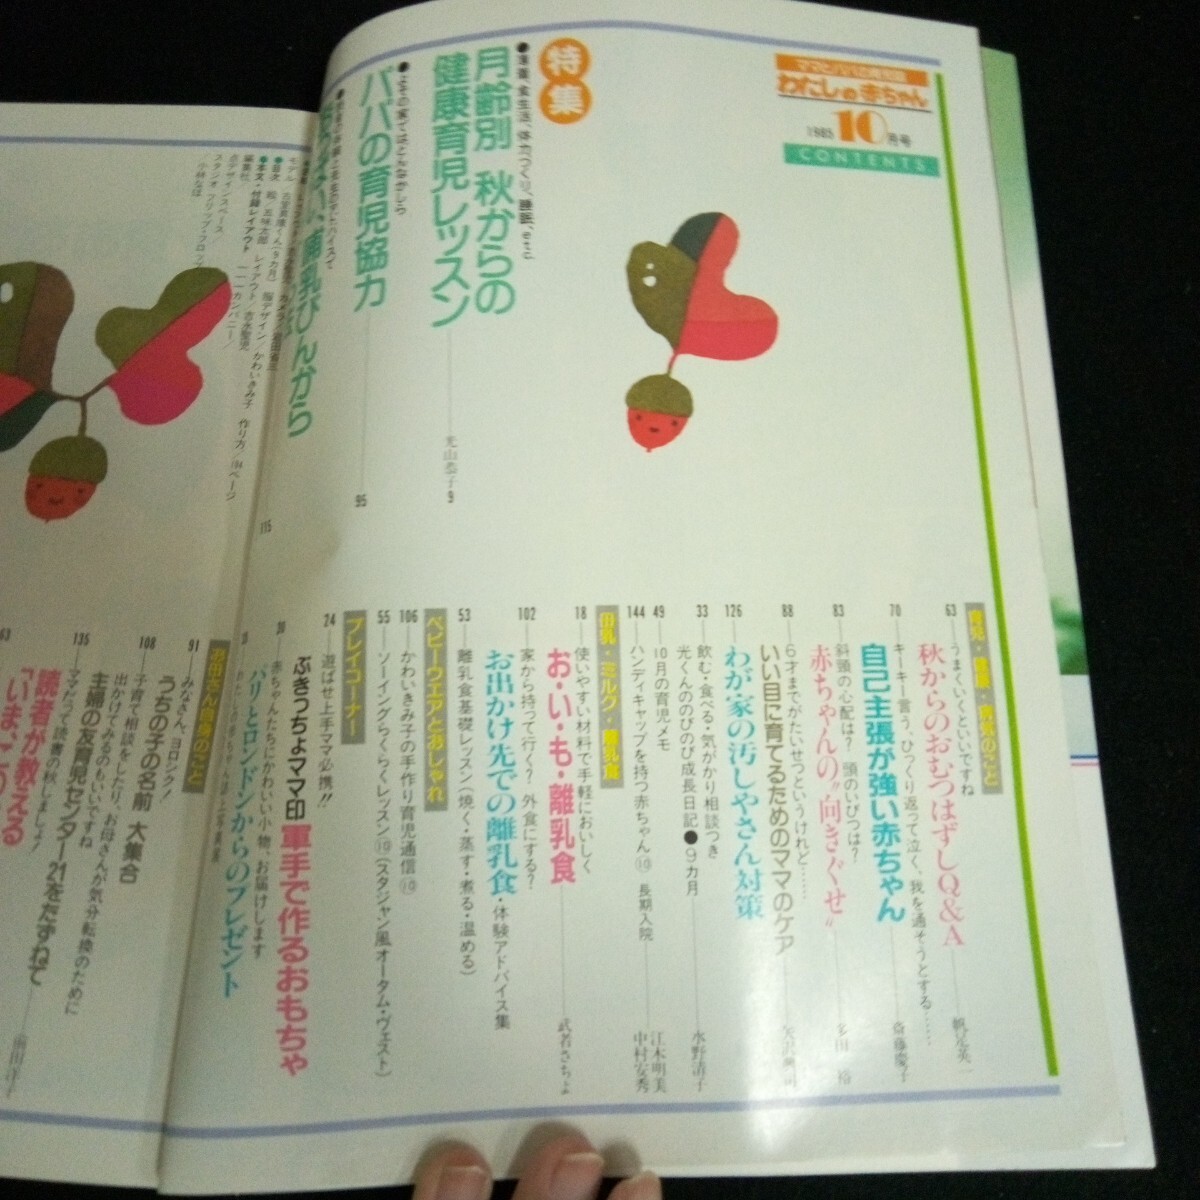 わたしの赤ちゃん
1985 10月号
CONTENTS
特集
月齢別 秋からの
健康育児レッスン
光山恭子 9
パパの育児協力
95
哺乳びんから
115
育児・健康・病気のこと
63
うまくいくといいですね
秋からのおむつはずしQ&A
帆足英一
70
キーキー言う、ひっくり返って泣く、我を通そうとする……
自己主張が強い赤ちゃん
斎藤慶子
83
斜頭の心配は? 頭のいびつは?
赤ちゃんの“向きぐせ”
多田 裕
88
6才までがたいせつというけれど……
いい目に育てるためのママのケア
126
わが家の汚しやさん対策
33
飲む・食べる・気がかり相談つき
光くんののびのび成長日記●9ヵ月
水野清子
49
10月の育児メモ
江木明美
144
ハンディキャップを持つ赤ちゃん⑩ 長期入院
中村安秀
母乳・ミルク・離乳食
18
使いやすい材料で手軽においしく
お・い・も・離乳食
武者さちよ
102
家から持って行く? 外食にする?
お出かけ先での離乳食・体験アドバイス集
53
離乳食基礎レッスン(焼く・蒸す・煮る・温める)
ベビーウエアとおしゃれ
106
かわいきみ子の手作り育児通信⑩
55
ソーイングらくらくレッスン⑩(スタジャン風オータム・ヴェスト)
プレイコーナー
24
遊ばせ上手ママ必携!!
ぶきっちょママ印 軍手で作るおもちゃ
30
赤ちゃんたちにかわいい小物、お届けします
パリとロンドンからのプレゼント
お母さん自身のこと
91
みなさん、ヨロシク!
うちの子の名前 大集合
108
子育て相談をしたり、お母さんが気分転換のために
出かけてみるのもいいですね
主婦の友育児センター21をたずねて
135
ママだって読書の秋しましょ!
読者が教える
「いま、この
63
●目次
絵/五味太郎
●本文・付録レイアウト
レイアウト/
服デザイン/かわいきみ子
スタジオ フリップ・フロップ